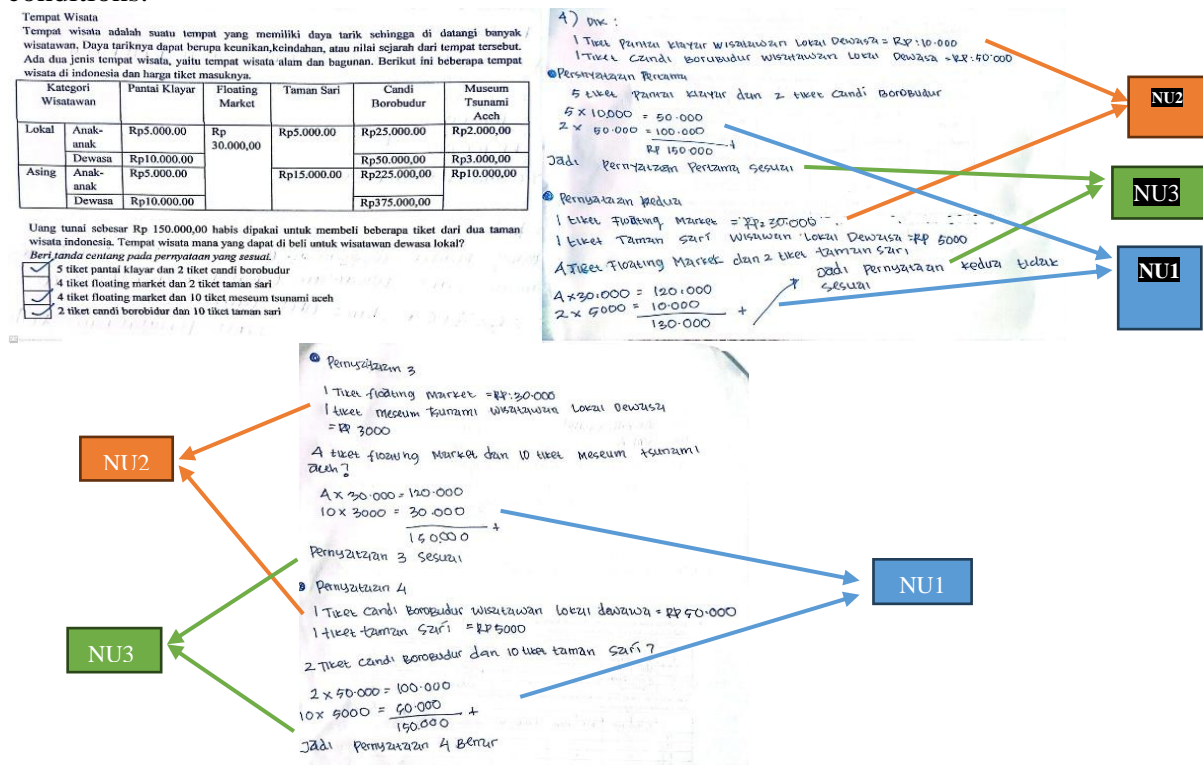 conditions.
Tempat Wisata
Tempat wisata adalah suatu tempat yang memiliki daya tarik sehingga di datangi banyak
wisatawan. Daya tariknya dapat berupa keunikan,keindahan, atau nilai sejarah dari tempat tersebut.
Ada dua jenis tempat wisata, yaitu tempat wisata alam dan bagunan. Berikut ini beberapa tempat
wisata di indonesia dan harga tiket masuknya.
Kategori Wisatawan Pantai Klayar Floating Market Taman Sari Candi Borobudur Museum Tsunami Aceh
Lokal Anak-anak Rp5.000.00 Rp 30.000,00 Rp5.000.00 Rp25.000.00 Rp2.000,00
Dewasa Rp10.000.00 Rp50.000,00 Rp3.000,00
Asing Anak-anak Rp5.000.00 Rp15.000.00 Rp225.000,00 Rp10.000,00
Dewasa Rp10.000.00 Rp375.000,00
Uang tunai sebesar Rp 150.000,00 habis dipakai untuk membeli beberapa tiket dari dua taman
wisata indonesia. Tempat wisata mana yang dapat di beli untuk wisatawan dewasa lokal?
Beri tanda centang pada pernyataan yang sesuai.
5 tiket pantai klayar dan 2 tiket candi borobudur
4 tiket floating market dan 2 tiket taman sari
4 tiket floating market dan 10 tiket meseum tsunami aceh
2 tiket candi borobidur dan 10 tiket taman sari
4) Dik :
1 Tiket Pantai Klayar wisatawan Lokal Dewasa = RP:10.000
1 Tiket Candi Borubudur wisatawan Lokal Dewasa = RP:50.000
Pernyataan Pertama
5 tiket Pantai Klayar dan 2 tiket Candi Borobudur
5 x 10.000 = 50.000
2 x 50.000 = 100.000 +
RP 150.000
Jadi Pernyataan Pertama sesuai
Pernyataan kedua
1 tiket Floating Market = RP:30.000
1 tiket Taman Sari wisatawan Lokal Dewasa = RP 5000
4 Tiket Floating Market dan 2 tiket taman sari
4x30.000 = 120.000
2 x 5000 = 10.000 +
130.000
Jadi Pernyataan kedua tidak
sesuai
NU2
NU3
NU1
Pernyataan 3
1 Tiket floating market = RP:30.000
1 tiket meseum tsunami wisatawan Lokal Dewasa
= RP 3000
4 tiket floating Market dan 10 tiket meseum tsunami
aceh?
4 x 30.000 = 120.000
10 x 3000 = 30.000 +
150.000
Pernyataan 3 sesuai
Pernyataan 4
1 Tiket Candi Borobudur wisatawan lokal dewawa = RP 50.000
1 tiket taman sari = RP 5000
2 Tiket Candi Borobudur dan 10 tiket taman sari ?
2 x 50.000 = 100.000
10x 5000 = 50.000 +
150.000
Jadi Pernyataan 4 Benar
NU2
NU3
NU1